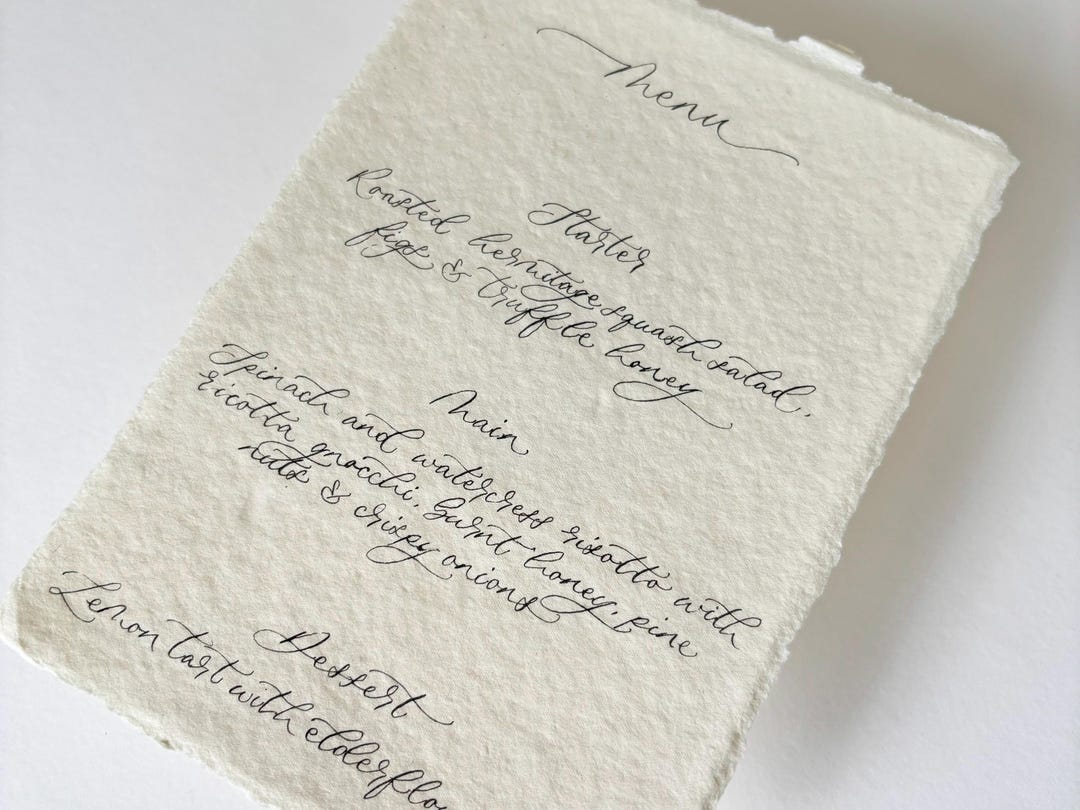 Menu
Starter
Roasted hermitage squash salad,
figs & truffle honey
Main
Spinach and watercress risotto with
ricotta gnocchi, burnt honey, pine
nuts & crispy onions
Dessert
Lemon tart with elderflo